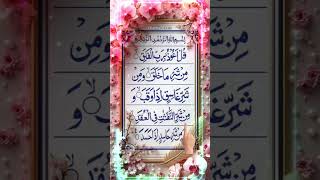 بِسْمِ اللّٰهِ الرَّحْمٰنِ الرَّحِيْمِ
قُلْ اَعُوْذُ بِرَبِّ الْفَلَقِ
مِنْ شَرِّ مَا خَلَقَ وَمِنْ
شَرِّ غَاسِقٍ اِذَا وَقَبَ وَ
مِنْ شَرِّ النَّفّٰثٰتِ فِى الْعُقَدِ وَ
مِنْ شَرِّ حَاسِدٍ اِذَا حَسَدَ